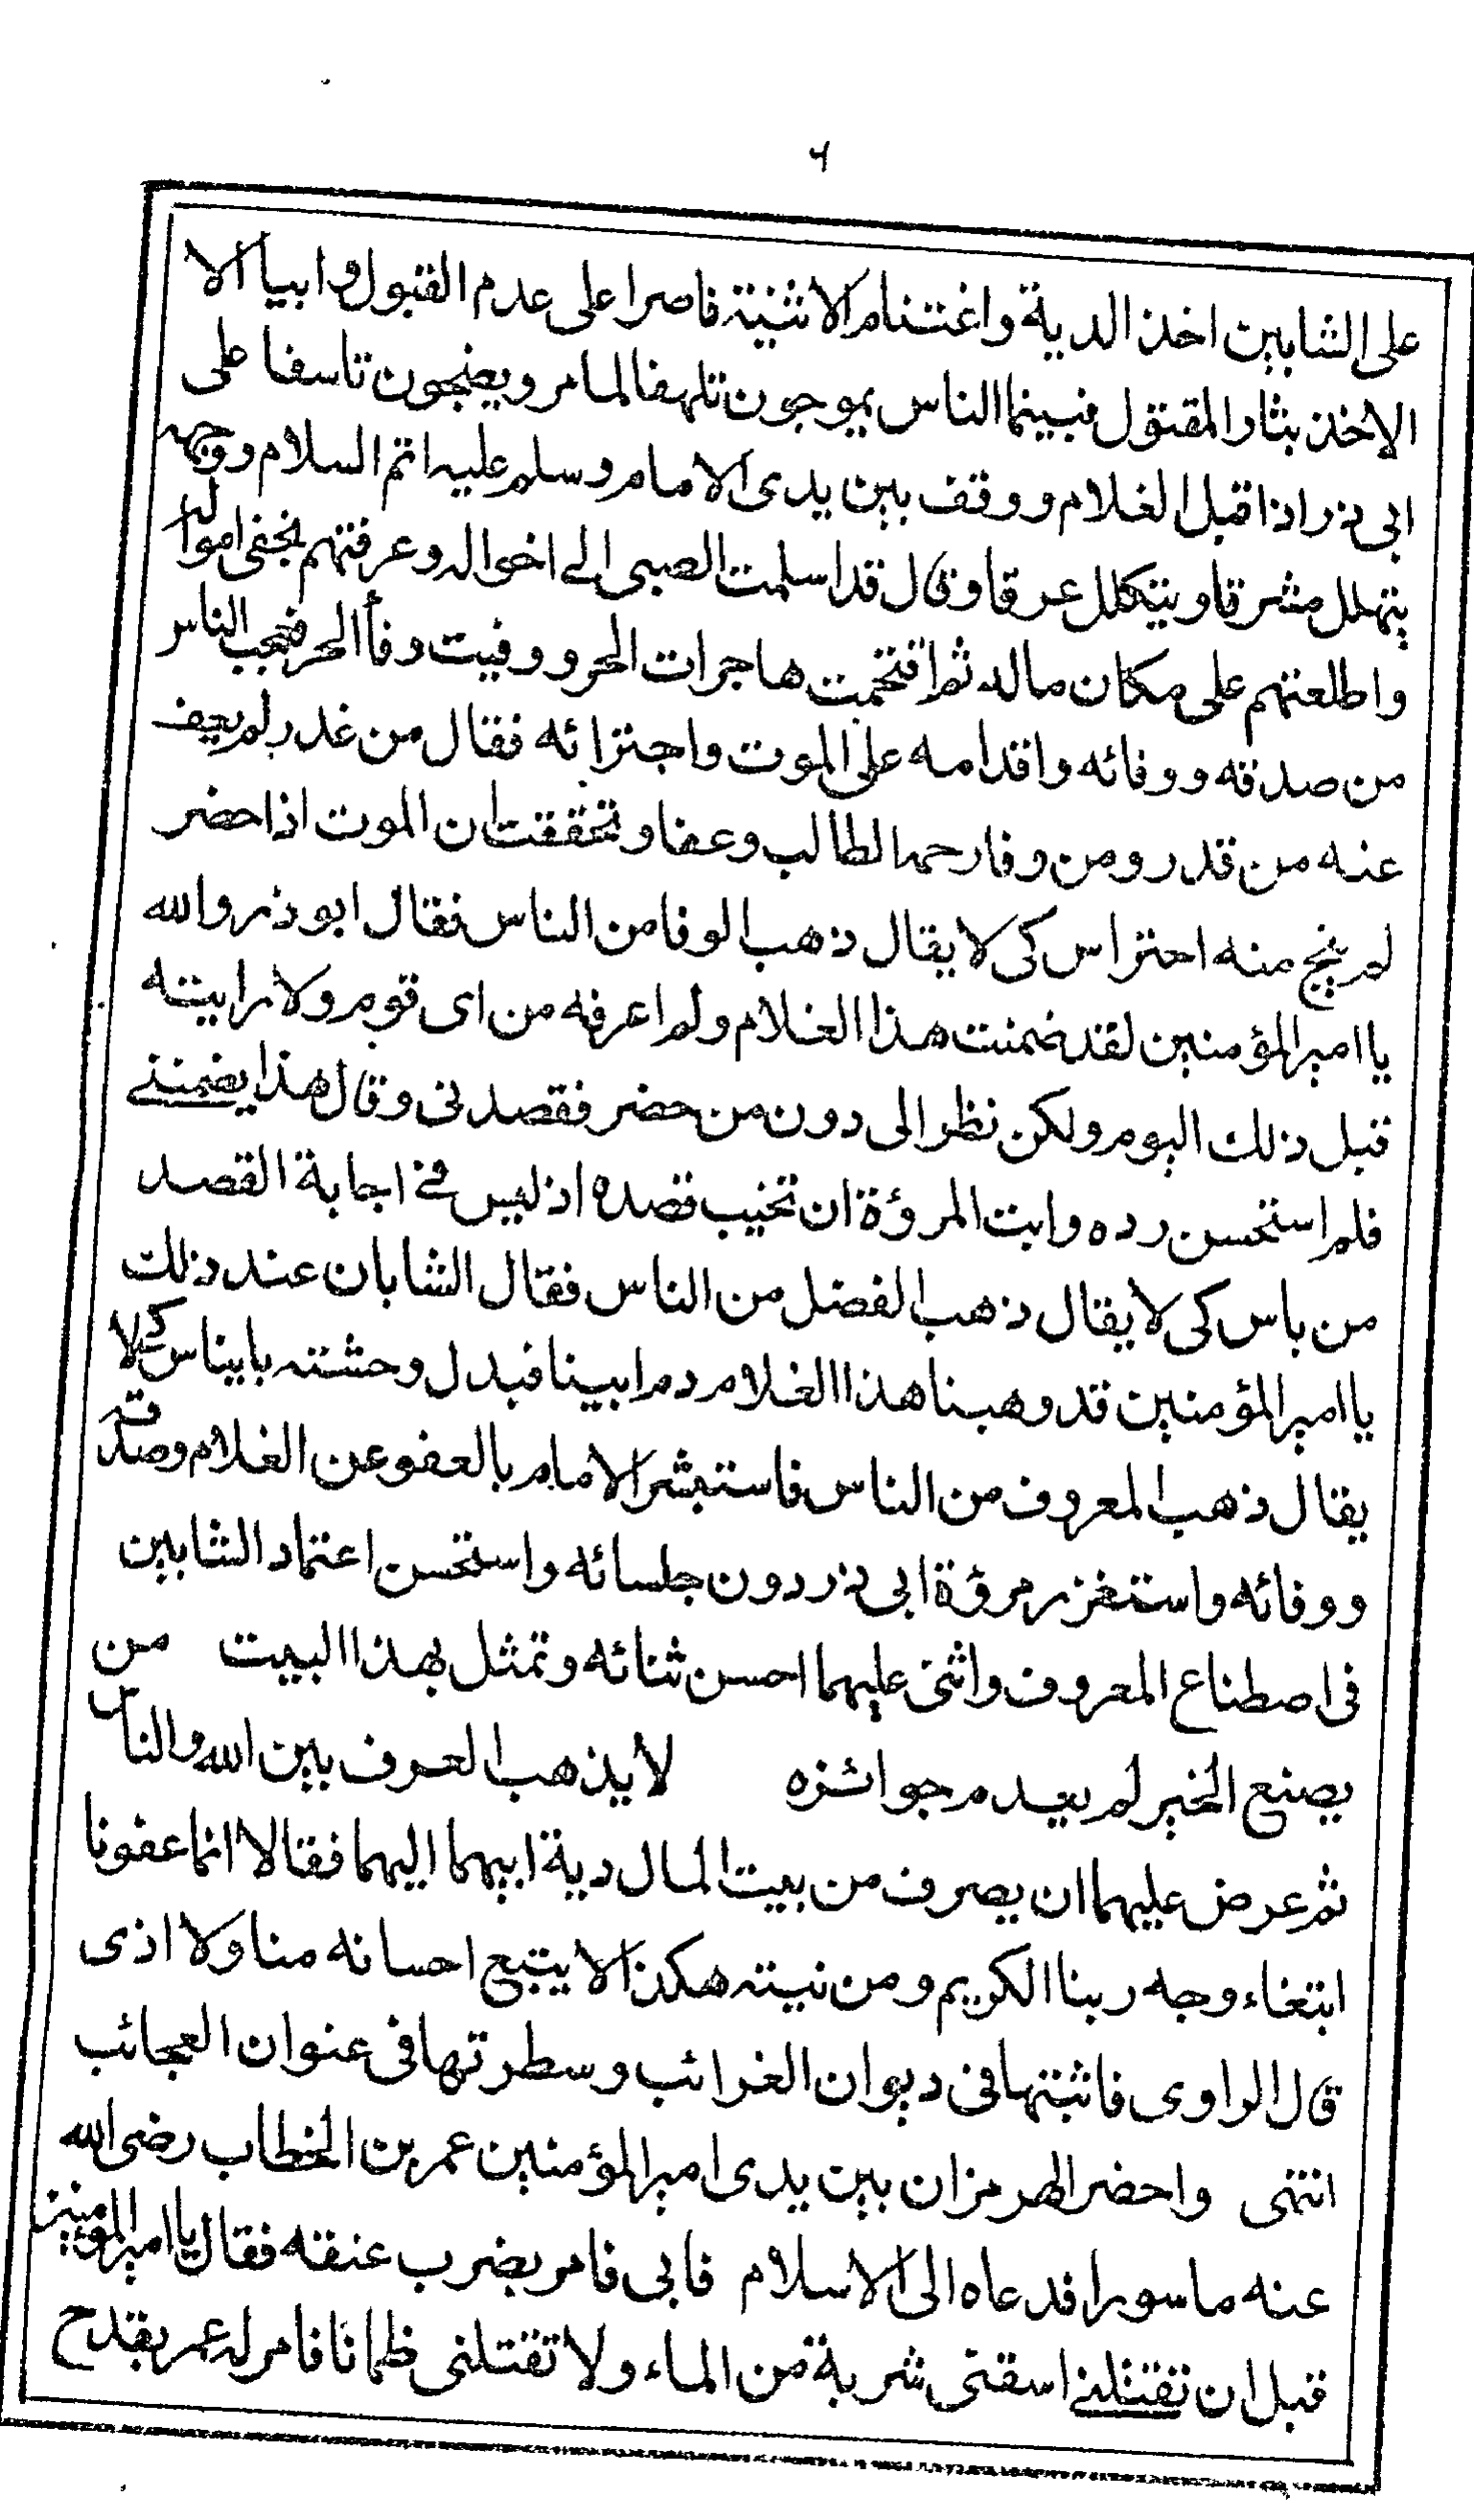 ٦
على الشابين اخذ الدية واغتنام الاثنية فاصرا على عدم القبول وابيا الا
الاخذ بثار المقتول فبينما الناس يموجون تلهفا لما مر ويضجون تاسفا على
ابى ذر اذ اقبل الغلام ووقف بين يدى الامام وسلم عليه اتم السلام ووجهه
يتهلل مشرقا ويتكلل عرقا وقال قد اسلمت الصبى الى اخواله وعرفتهم بخفى امواله
واطلعتهم على مكان ماله ثم اقتحمت هاجرات الحر ووفيت وفأ الحر فعجب الناس
من صدقه ووفائه واقدامه على الموت واجترائه فقال من غدر لم يعف
عنه من قدر ومن وفا رحمه الطالب وعفا وتحققت ان الموت اذا حضر
لم ينج منه احتراس كى لا يقال ذهب الوفا من الناس فقال ابو ذر والله
يا امير المؤمنين لقد ضمنت هذا الغلام ولم اعرفه من اى قوم ولا رايته
قبل ذلك اليوم ولكن نظر الى دون من حضر فقصدنى وقال هذا يضمننى
فلم استحسن رده وابت المرؤة ان تخيب قصده اذ ليس فى اجابة القصد
من باس كى لا يقال ذهب الفضل من الناس فقال الشابان عند ذلك
يا امير المؤمنين قد وهبنا هذا الغلام دم ابينا فبدل وحشته بايناس كى لا
يقال ذهب المعروف من الناس فاستبشر الامام بالعفو عن الغلام وصدقه
ووفائه واستغزر مرؤة ابى ذر دون جلسائه واستحسن اعتماد الشابين
فى اصطناع المعروف واثنى عليهما احسن ثنائه وتمثل بهذا البيت من
يصنع الخير لم يعدم جوائزه لا يذهب العرف بين الله والناس
ثم عرض عليهما ان يصرف من بيت المال دية ابيهما اليهما فقالا انما عفونا
ابتغاء وجه ربنا الكريم ومن نيته هكذا لا يتبع احسانه منا ولا اذى
قال الراوى فاثبتها فى ديوان الغرائب وسطرتها فى عنوان العجائب
انتهى واحضر الهرمزان بين يدى امير المؤمنين عمر بن الخطاب رضى الله
عنه ماسورا فدعاه الى الاسلام فابى فامر بضرب عنقه فقال يا امير المؤمنين
قبل ان تقتلنى اسقنى شربة من الماء ولا تقتلنى ظمانا فامر له عمر بقدح